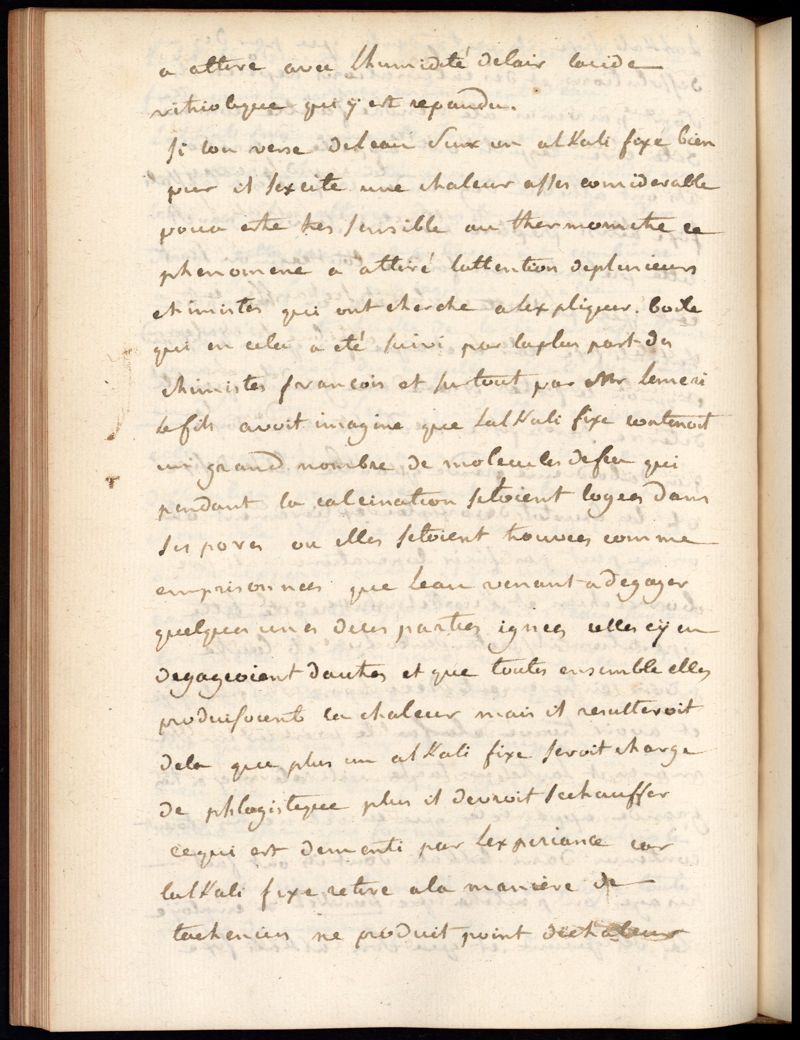 a attiré avec l'humidité delair lacide
vitriolique qui y est repandu.
si lon verse deleau sur un alKali fixe bien
pur il sexcite une chaleur asses considerable
pour etre tres sensible au thermometre ce
phenomene a attiré lattention deplusieurs
chimistes qui ont cherche alexpliquer. boile
qui en cela a eté suivi par laplus part des
chimistes francois et surtout par Mr lemeri
le fils avoit imagine que lalKali fixe contenoit
un grand nombre de molecules defeu qui
pendant la calcination setoient logees dans
ses pores ou elles setoient trouvees comme
emprisonnees que leau venant adegager
quelques unes deces parties ignees celles cy en
degageoient dautres et que toutes ensemble elles
produisoient la chaleur mais il resulteroit
dela que plus un alKali fixe seroit charge
de phlogistique plus il devroit sechauffer
cequi est dementi par lexperiance car
lalKali fixe retire ala maniere de
tachenius ne produit point dechaleur